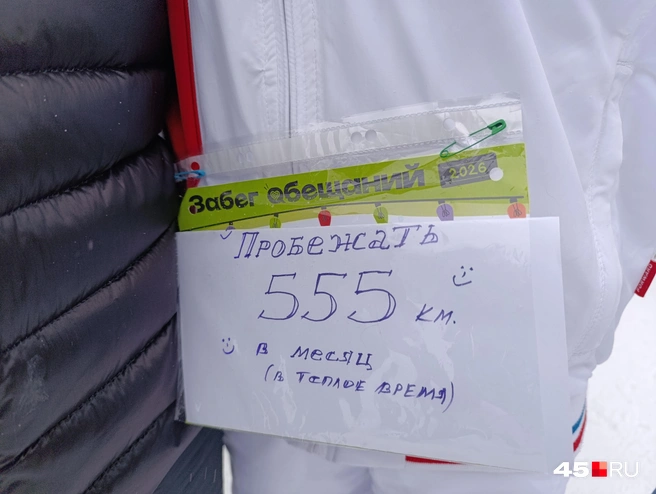 Забег обещаний 2026
Пробежать
555 км.
в месяц
(в теплое время)
45.RU